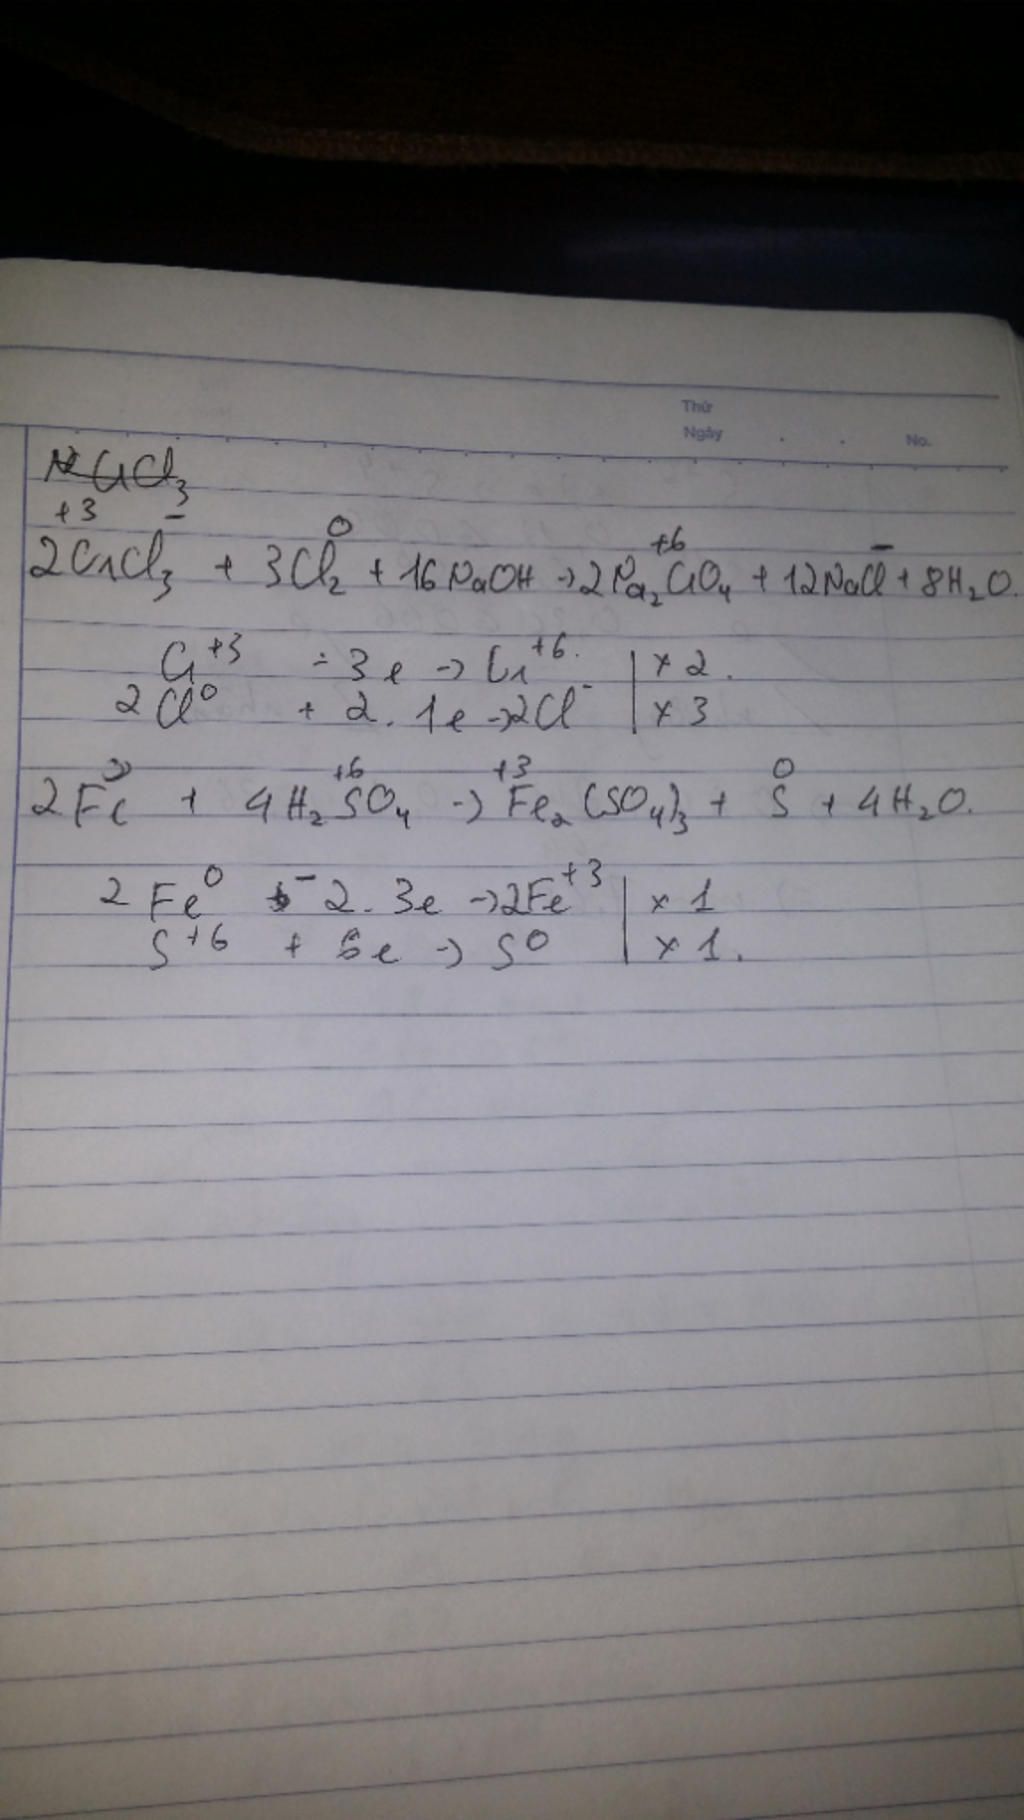 Thứ
Ngày No.
CrCl3
+3 - 0 +6 -
2CrCl3 + 3Cl2 + 16NaOH → 2Na2CrO4 + 12NaCl + 8H2O.
Cr+3 - 3e → Cr+6. | x 2.
2Cl0 + 2.1e → 2Cl- | x 3
0 +6 +3 0
2Fe + 4H2SO4 → Fe2(SO4)3 + S + 4H2O.
2Fe0 - 2.3e → 2Fe+3 | x 1
S+6 + 6e → S0 | x 1.